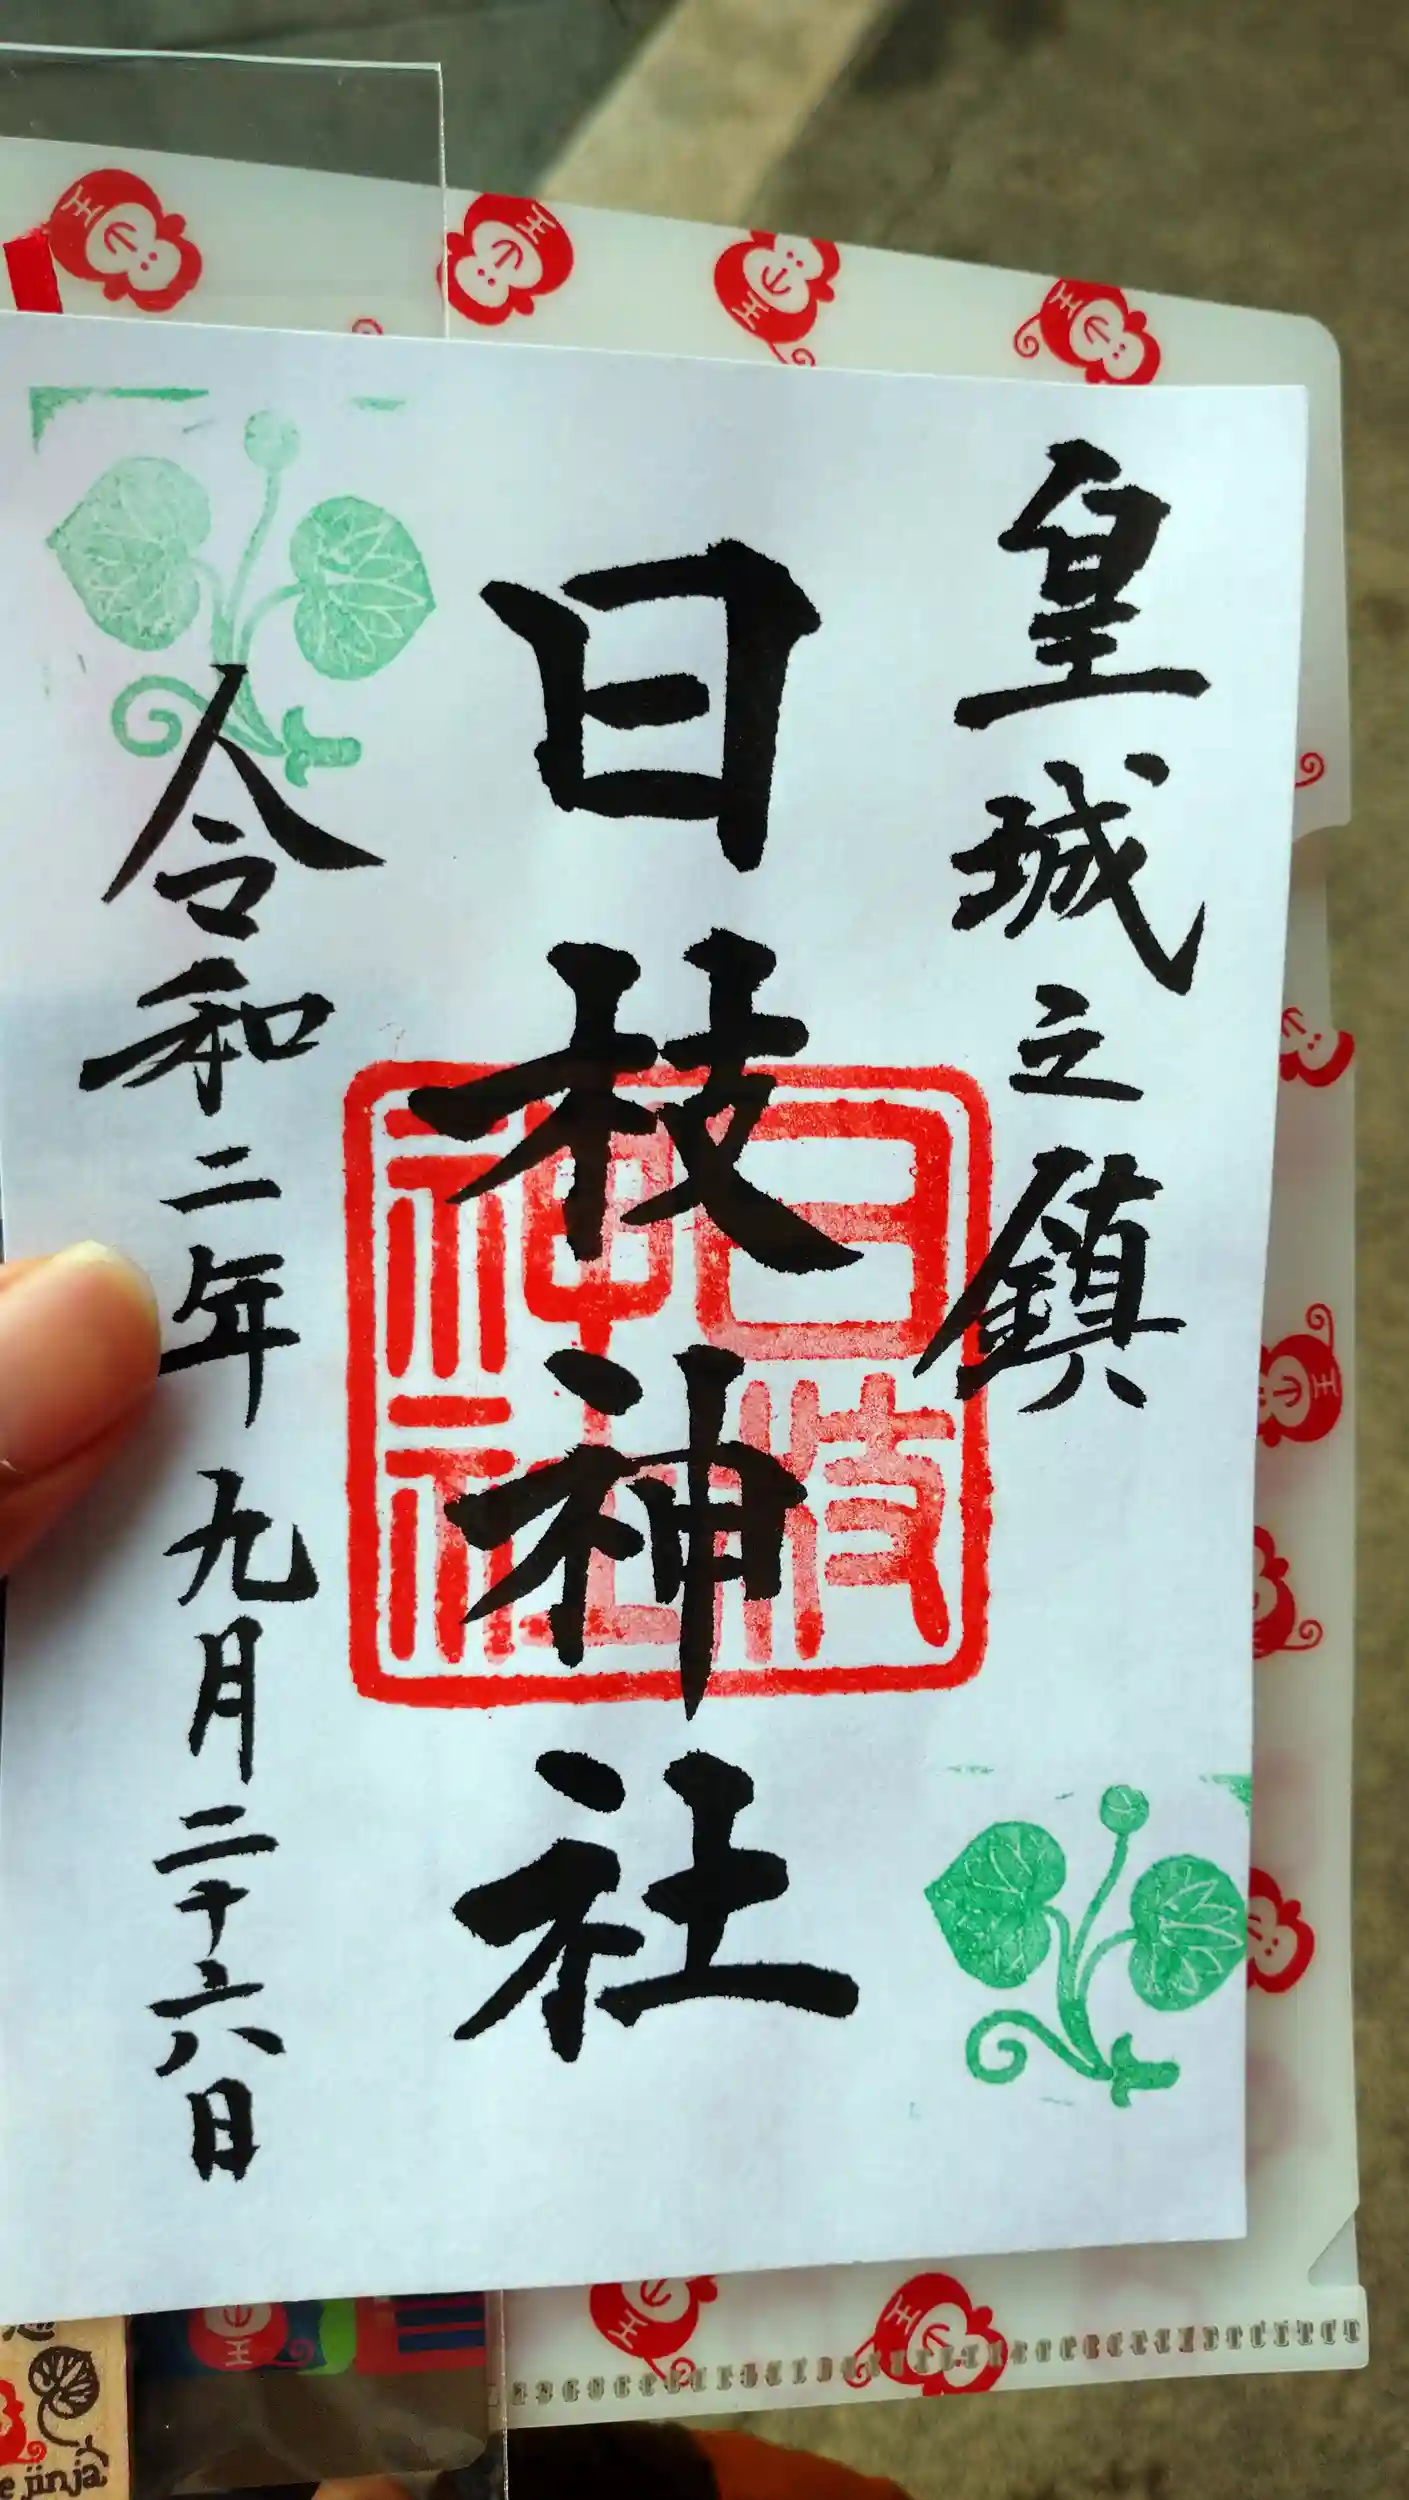 皇城之鎮
日枝神社
日枝神社
令和二年九月二十六日
e jinja